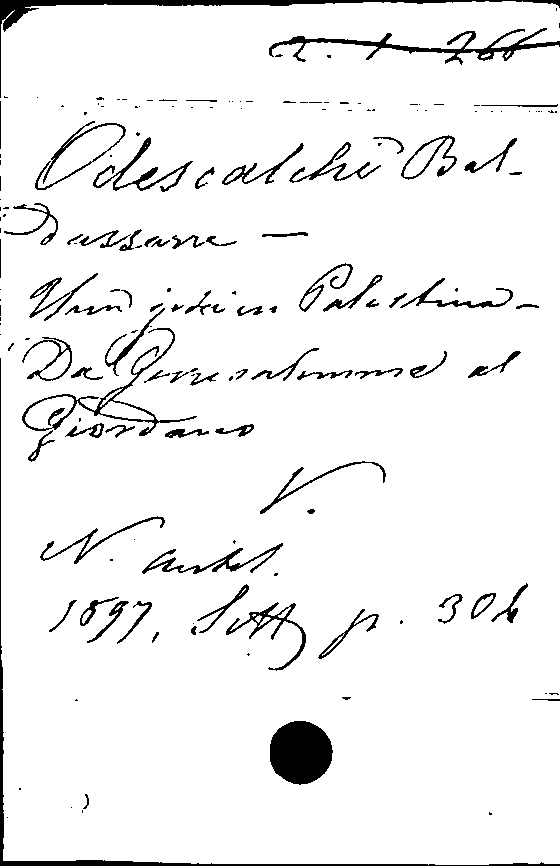 2. 1. 266
Odescalchi Bal-
dassarre —
Una gita in Palestina -
Da Gerusalemme al
Giordano
V.
N. Antol.
1897, Sett p. 304